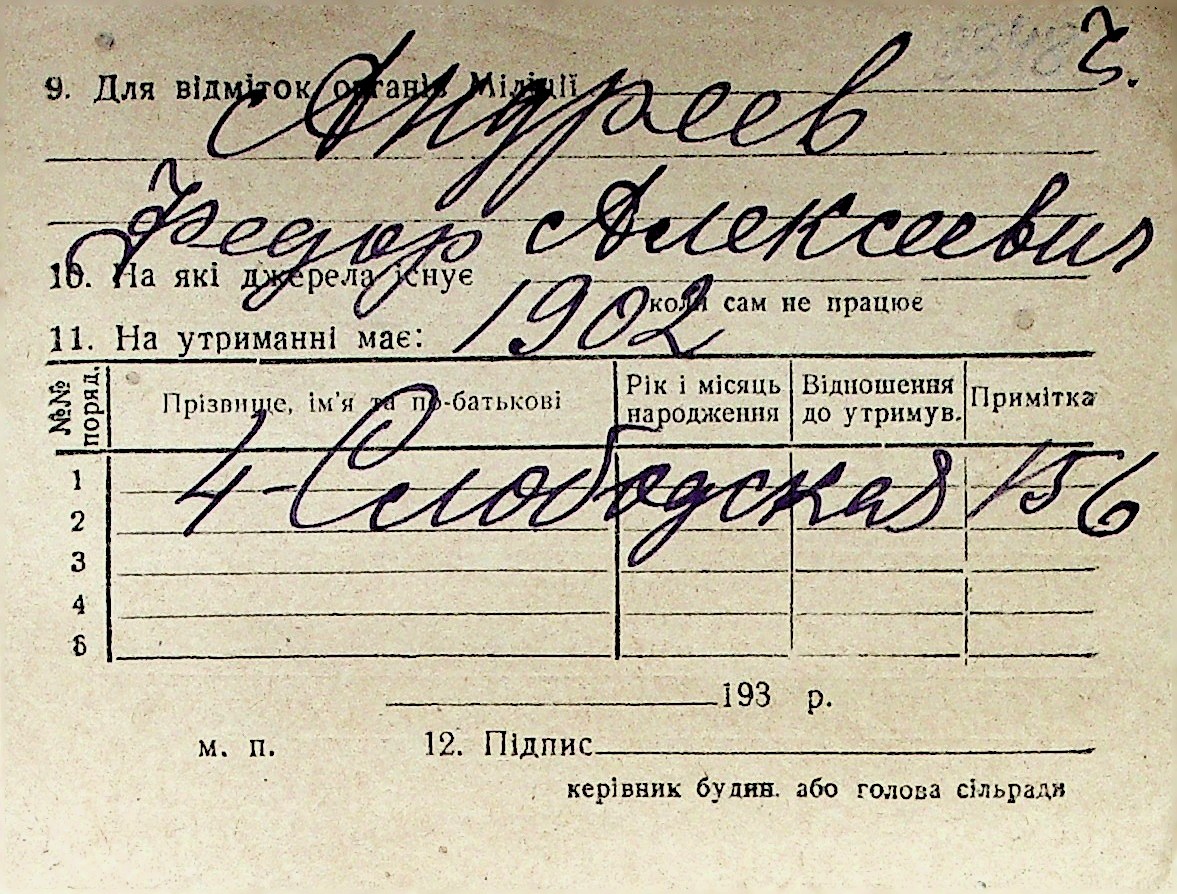 ч.
9. Для відміток органів Міліції
Андреев
Федор Алексеевич
10. На які джерела існує
коли сам не працює
1902
11. На утриманні має:
№№ поряд. Прізвище, ім'я та по-батькові Рік і місяць народження Відношення до утримув. Примітка
4-Слободская 156
1
2
3
4
5
193 р.
м. п. 12. Підпис
керівник будин. або голова сільради